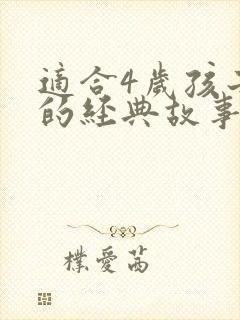 適合4歲孩子
的經典故事
樸愛茜